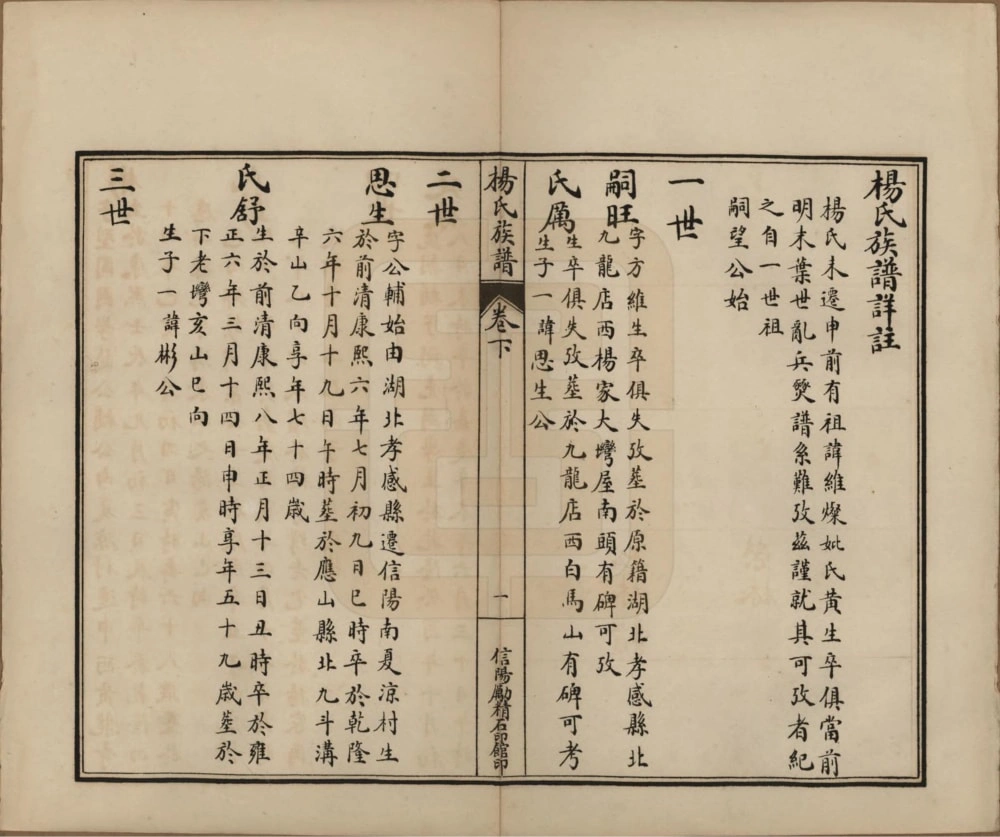 楊氏族譜詳註
楊氏未遷申前有祖諱維燦妣氏黃生卒俱當前
明末葉世亂兵燹譜系難攷茲謹就其可攷者紀
之自一世祖
嗣望公始
一世
嗣旺字方維生卒俱失攷塟於原籍湖北孝感縣北
九龍店西楊家大灣屋南頭有碑可攷
氏厲生卒俱失攷塟於九龍店西白馬山有碑可考
生子一諱思生公
楊氏族譜
卷下
一
信陽勵精石印館印
二世
思生字公輔始由湖北孝感縣遷信陽南夏涼村生
於前清康熙六年七月初九日巳時卒於乾隆
六年十月十九日午時塟於應山縣北九斗溝
辛山乙向享年七十四歲
氏舒生於前清康熙八年正月十三日丑時卒於雍
正六年三月十四日申時享年五十九歲塟於
下老灣亥山巳向
生子一諱彬公
三世